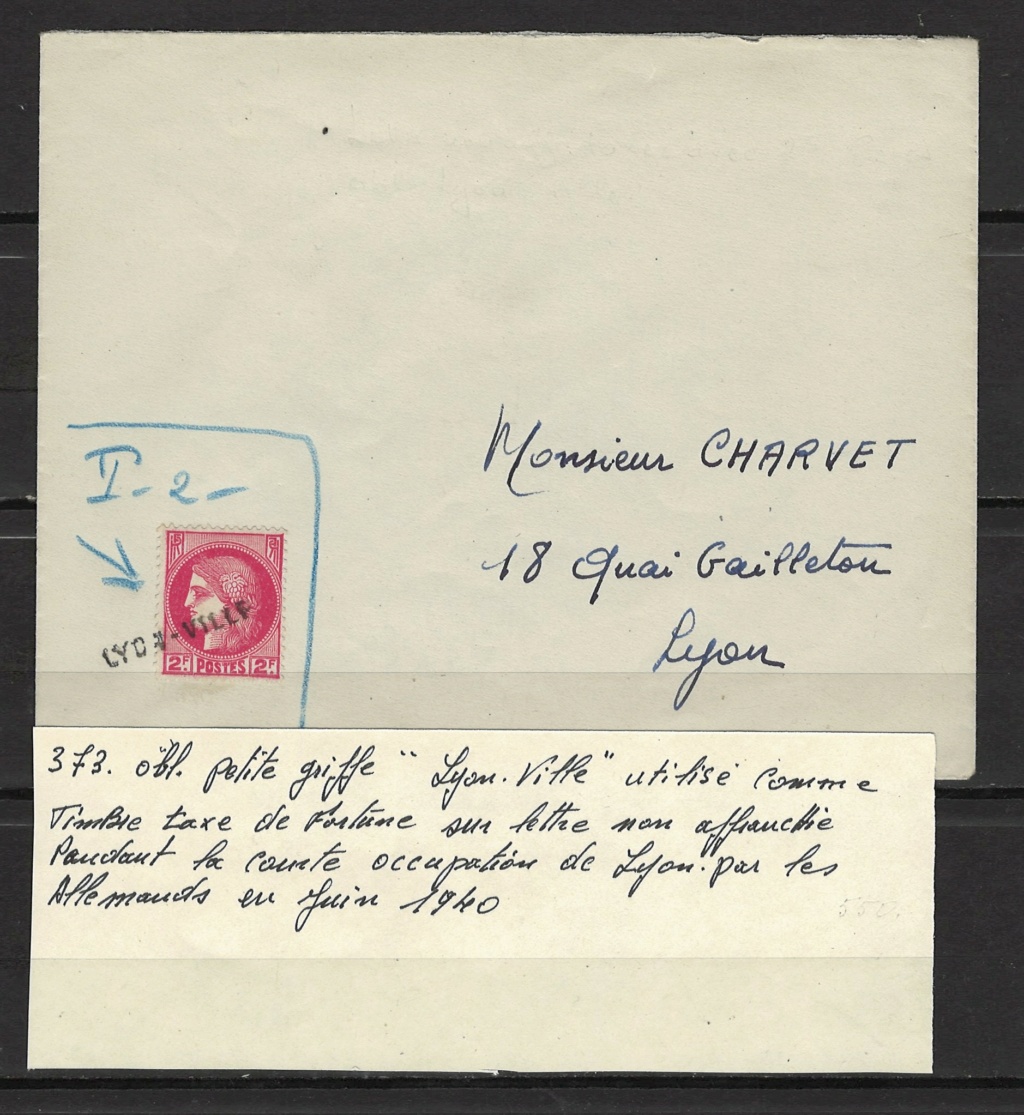 Monsieur CHARVET
18 Quai Gailleton
Lyon
T-2-
LYON-VILLE
2F POSTES 2F
373. obl. petite griffe "Lyon-Ville" utilisé comme
Timbre taxe de Fortune sur lettre non affranchie
Pendant la courte occupation de Lyon par les
Allemands en Juin 1940
550.